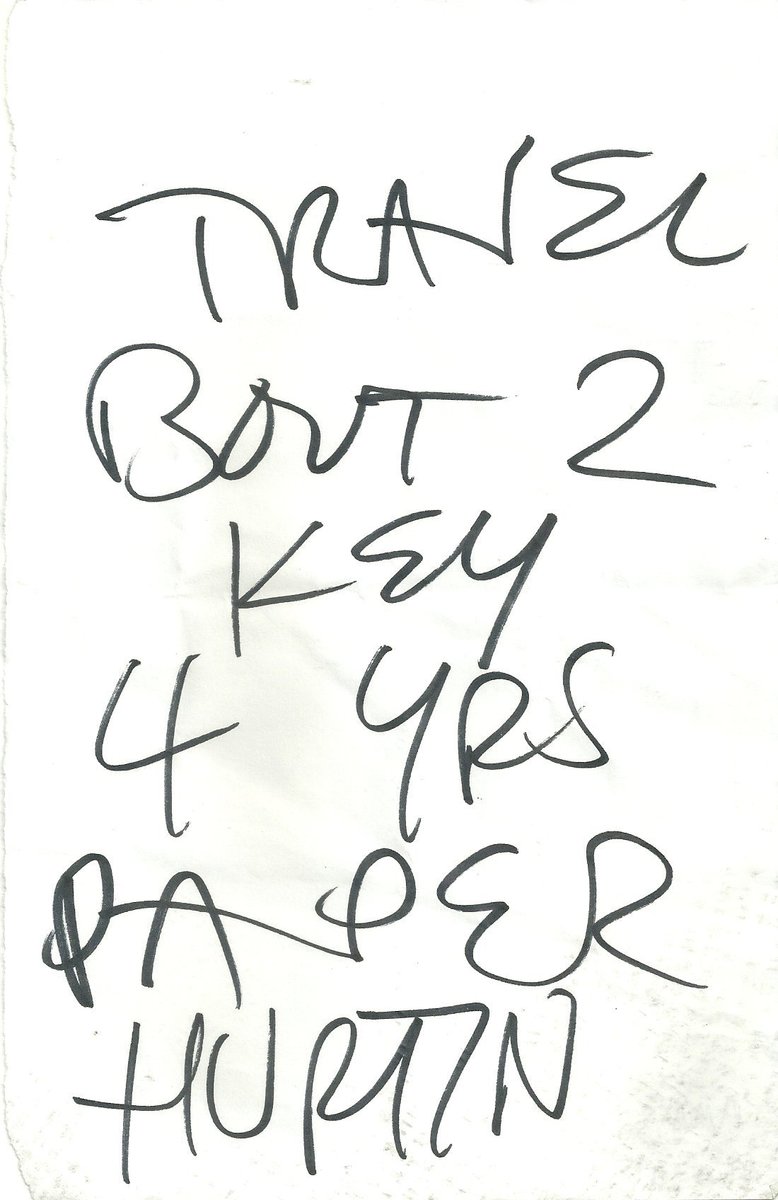 TRAVEL
BOUT 2
KEY
4 YRS
PAPER
HURTIN